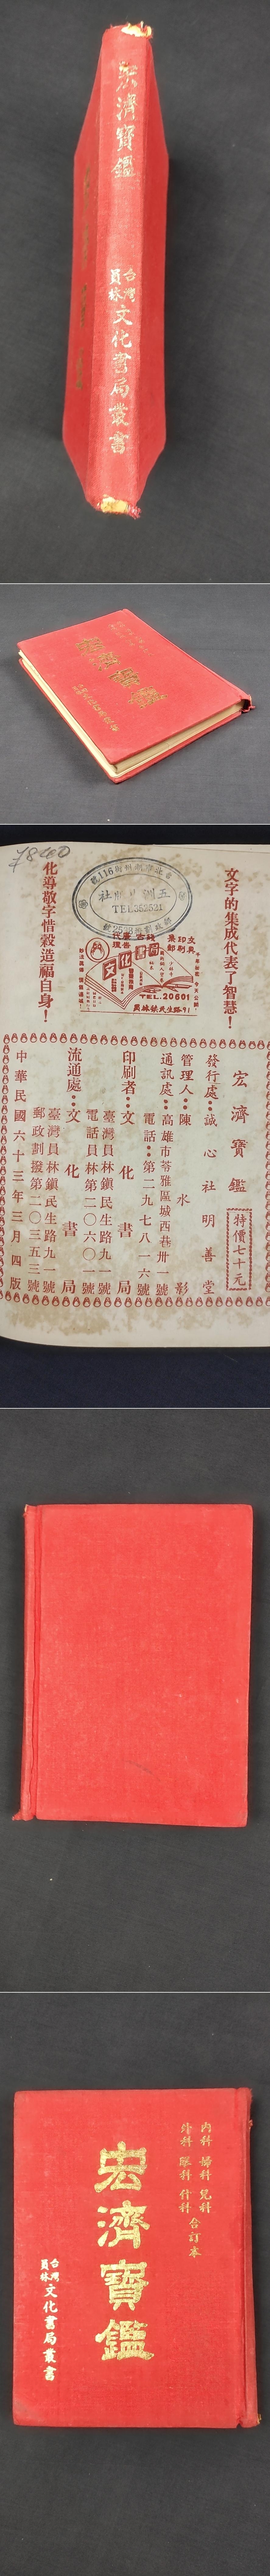 宏濟寶鑑
台灣
員林
文化書局叢書
宏濟寶鑑
7800
文字的集成代表了智慧！
化導敬字惜穀造福自身！
五洲出版社
TEL
文化書局
TEL.20601
員林鎮民生路91
宏濟寶鑑
特價七十元
發行處：誠心社明善堂
管理人：陳水影
通訊處：高雄市苓雅區城西巷卅一號
電話：第二九七八一六號
印刷者：文化書局
臺灣員林鎮民生路九一號
電話員林第二〇六〇一號
流通處：文化書局
臺灣員林鎮民生路九一號
郵政劃撥第二〇三五三號
中華民國六十三年三月四版
內科 婦科 兒科
外科 眼科 什科
合訂本
宏濟寶鑑
台灣
員林
文化書局叢書